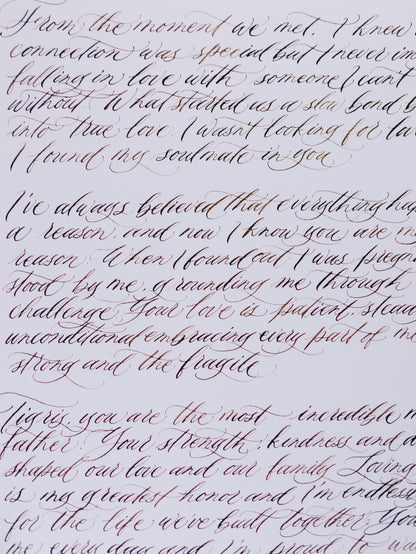 From the moment we met, I knew
connection was special but I never im
falling in love with someone I can't
without. What started as a slow bond b
into true love. I wasn't looking for lov
I found my soulmate in you
I've always believed that everything hap
a reason, and now I know you are m
reason. When I found out I was pregn
stood by me, grounding me through
challenge. Your love is patient, stead
unconditional embracing every part of me
strong and the fragile
Tigris, you are the most incredible m
father. Your strength, kindness and d
shaped our love and our family. Loving
is my greatest honor and I'm endless
for the life we've built together. You
me every day and I'm proud to wa